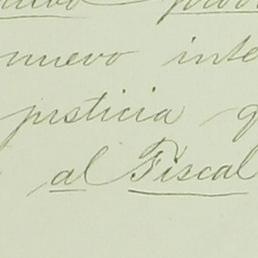 nuevo inte
justicia
al Fiscal